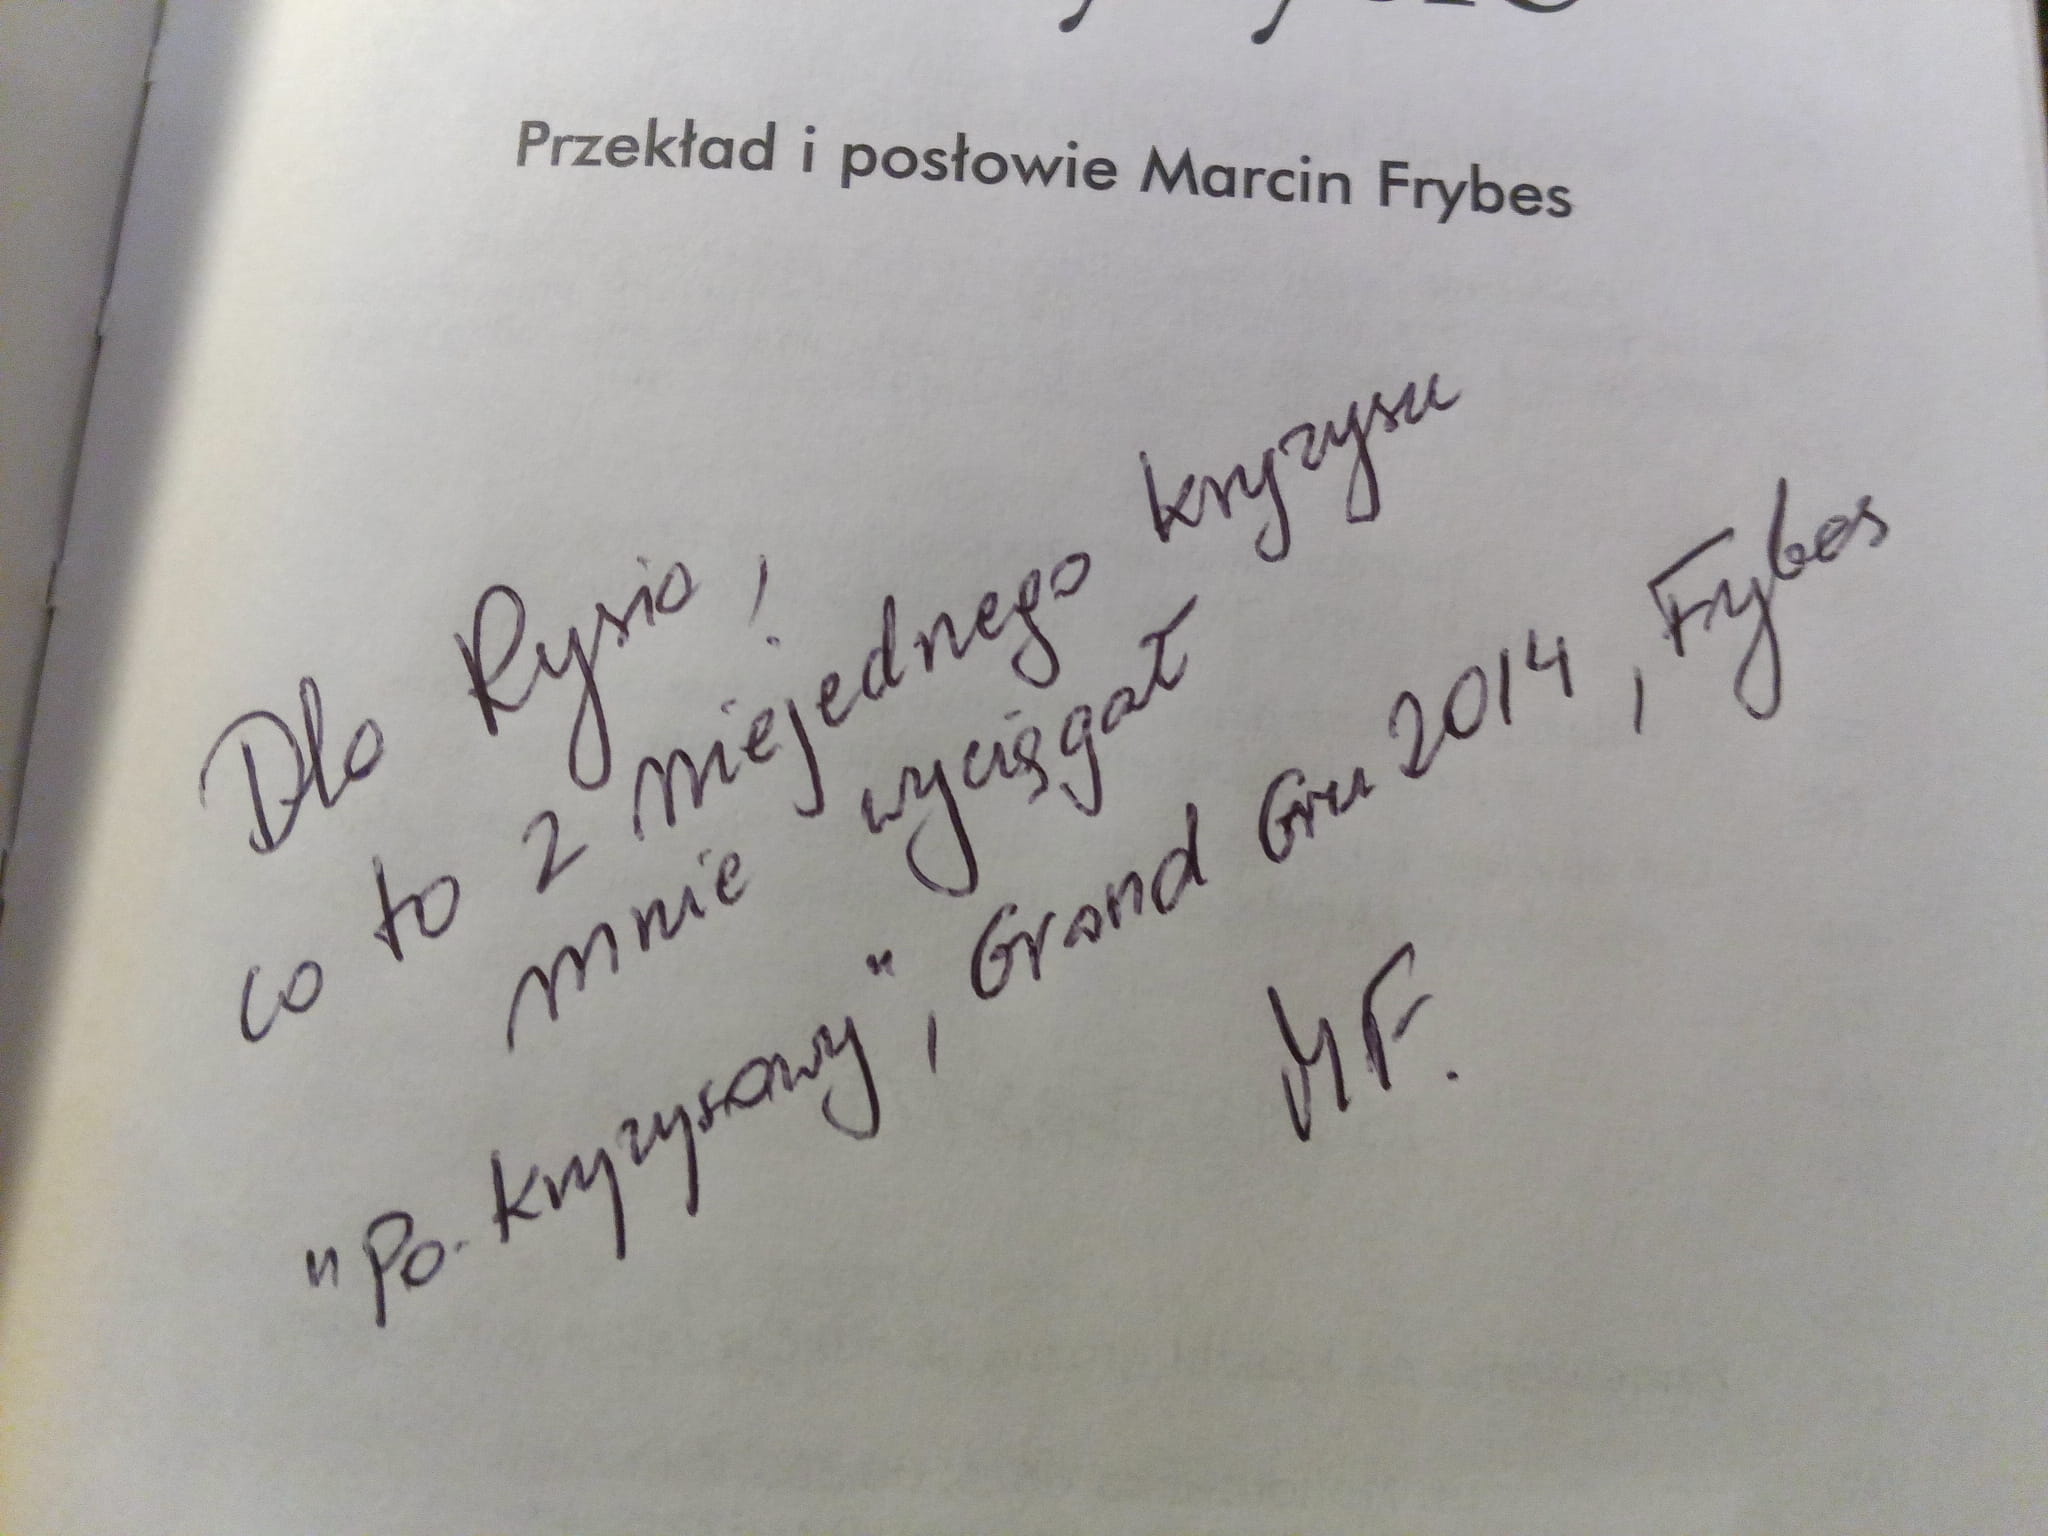 Przekład i posłowie Marcin Frybes
Dla Rysia!
co to z niejednego kryzysu
mnie wyciągał
"Po-kryzysowy", Grand Gru 2014, Frybes
MF.